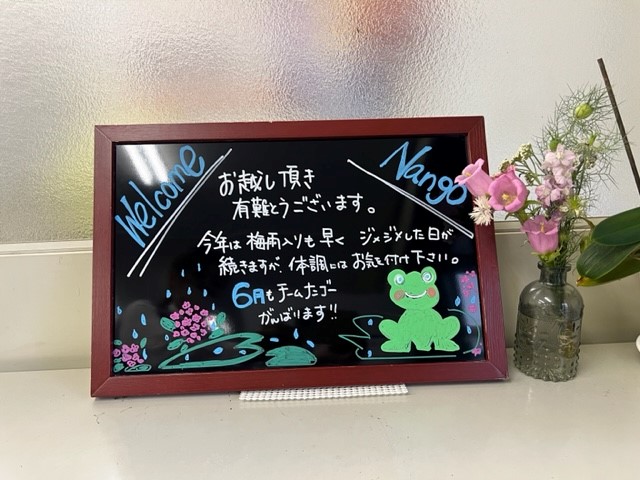 Welcome
Nango
お越し頂き
有難とうございます。
今年は梅雨入りも早く ジメジメした日が
続きますが、体調にはお気を付け下さい。
6月もチームナンゴー
がんばります!!